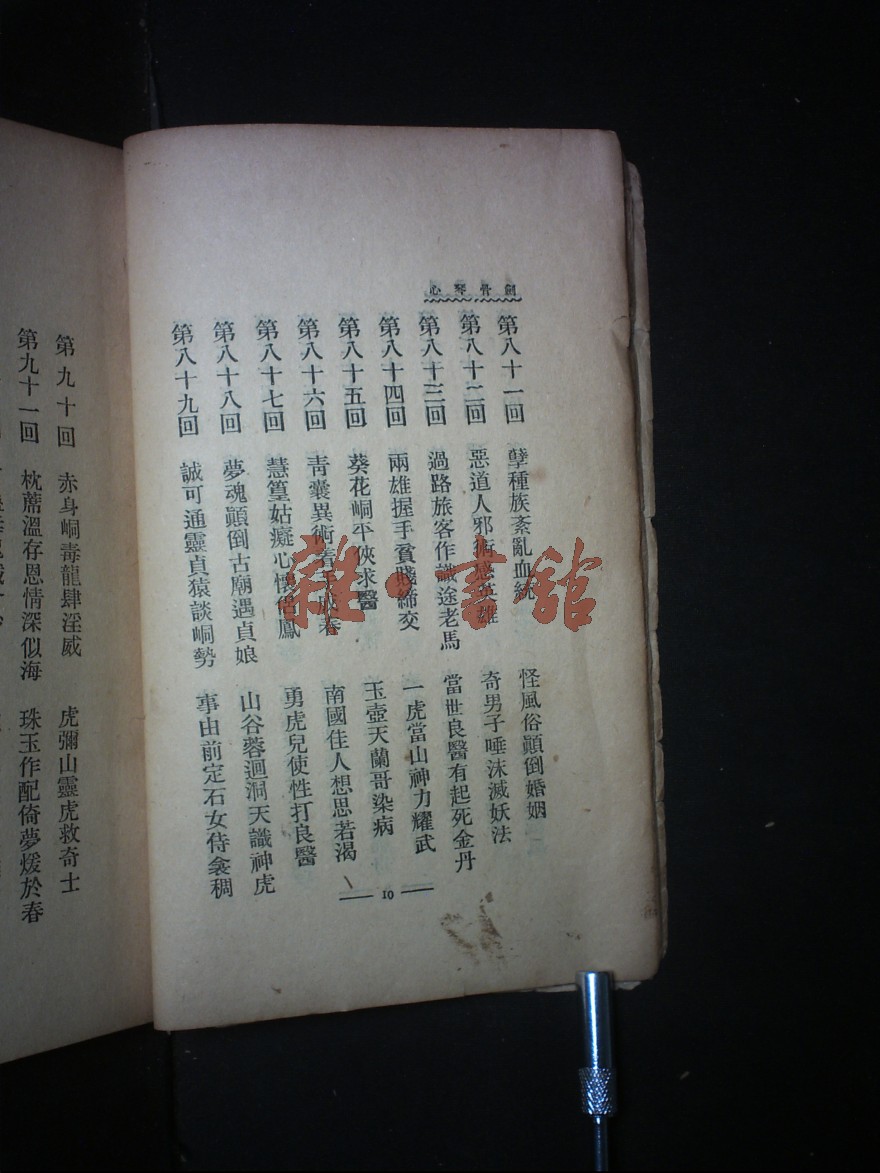 劍骨琴心
第八十一回 孽種族紊亂血統 怪風俗顛倒婚姻
第八十二回 惡道人邪術惑英雄 奇男子唾沫滅妖法
第八十三回 過路旅客作識途老馬 當世良醫有起死金丹
第八十四回 兩雄握手貧賤締交 一虎當山神力耀武
第八十五回 葵花峒平俠求醫 玉壺天蘭哥染病
第八十六回 青囊異術着手成春 南國佳人想思若渴
第八十七回 慧篁姑癡心懷侶鳳 勇虎兒使性打良醫
第八十八回 夢魂顛倒古廟遇貞娘 山谷蓉迴洞天識神虎
第八十九回 誠可通靈貞猿談峒勢 事由前定石女侍衾稠
10
第九十回 赤身峒毒龍肆淫威 虎彌山靈虎救奇士
第九十一回 枕蓆溫存恩情深似海 珠玉作配倚夢煖於春
雜·書館